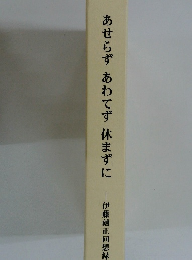 あせらず あわてず 休まずに
伊藤 正回想録